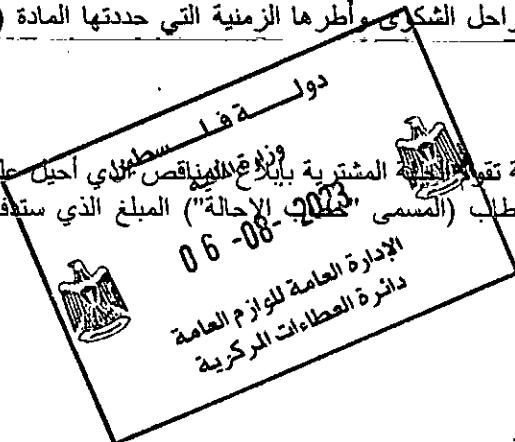 راحل الشكوى وأطرها الزمنية التي حددتها المادة (
دولة فلسطين
وزارة المالية
ة تقوم الجهة المشترية بإبلاغ المناقص الذي أحيل عل
طاب (المسمى "خطاب الإحالة") المبلغ الذي ستدف
06-08-2023
الإدارة العامة للوازم العامة
دائرة العطاءات المركزية